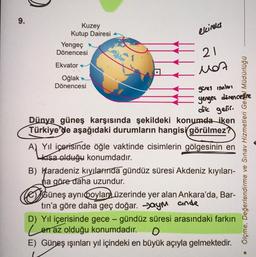 9.
Kuzey
Kutup Dairesi
Yengeç
Dönencesi
Ekvator
Oğlak
Dönencesi
21
güneş ışınları
yengeç dönencesine
dik gelir.
Dünya güneş karşısında şekildeki konumda iken
Türkiye'de aşağıdaki durumların hangisi görülmez?
A) Yıl içerisinde öğle vaktinde cisimlerin gölgesinin en
kısa olduğu konumdadır.
B) Karadeniz kıyılarında gündüz süresi Akdeniz kıyıları-
na göre daha uzundur.
C) Güneş aynı boylam üzerinde yer alan Ankara'da, Bar-
tın'a göre daha geç doğar.
D) Yıl içerisinde gece – gündüz süresi arasındaki farkın
en az olduğu konumdadır.
E) Güneş ışınları yıl içindeki en büyük açıyla gelmektedir.
Ölçme, Değerlendirme ve Sınav Hizmetleri Genel Müdürlüğü